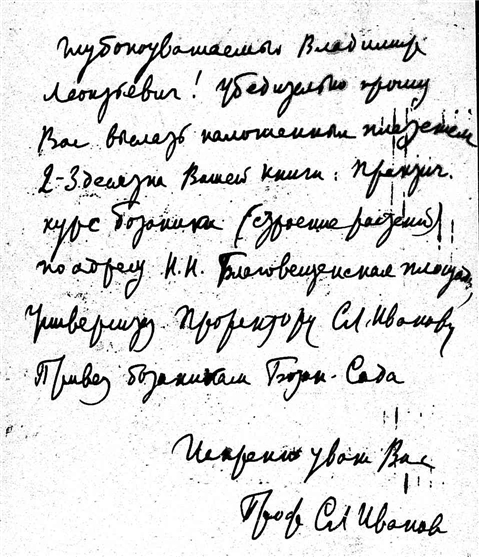 Глубокоуважаемый Владимир
Леонтьевич! Убедительно прошу
Вас выслать наложенным платежем
2-3 десятка Вашей книги: Практич.
курс ботаники (строение растений)
по адресу Н.Н. Благовещенская площадь,
Университет Проректору Сл. Иванову
Привет ботаникам Ботан-Сада
Искренно уваж Вас
Проф Сл Иванов